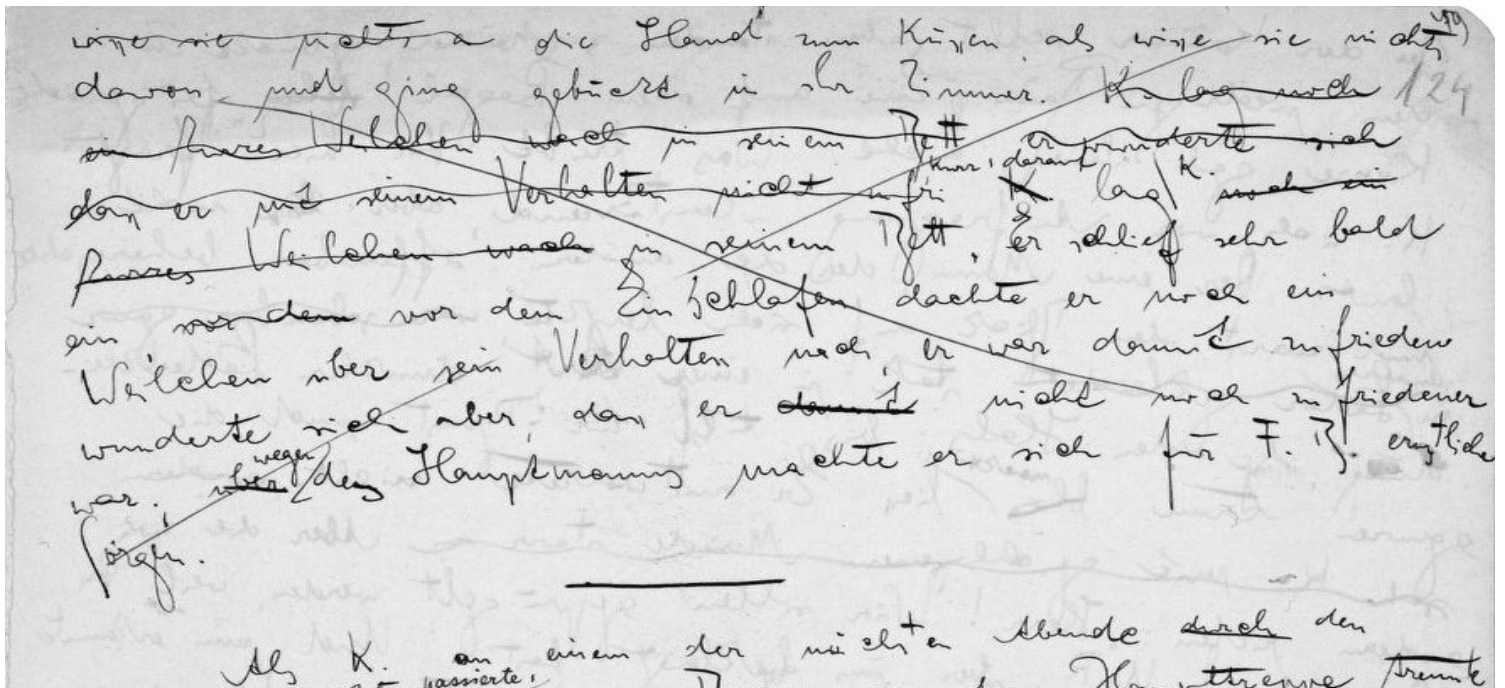 wisse sie nichts die Hand zum Küssen als wisse sie nichts
davon und ging gebückt in ihr Zimmer. K. lag noch 124
ein kurzes Weilchen wach in seinem Bett er wunderte sich
kurz darauf K.
dass er mit seinem Verhalten nicht zufri K lag noch ein
kurzes Weilchen wach in seinem Bett. Er schlief sehr bald
ein vor dem vor dem Einschlafen dachte er noch ein
Weilchen über sein Verhalten nach, er war damit zufrieden
wunderte sich aber, dass er damit nicht noch zufriedener
war; wegen
über des Hauptmanns machte er sich für F. B. ernstliche
Sorgen.
Als K. an einem der nächsten Abende durch den
passierte,